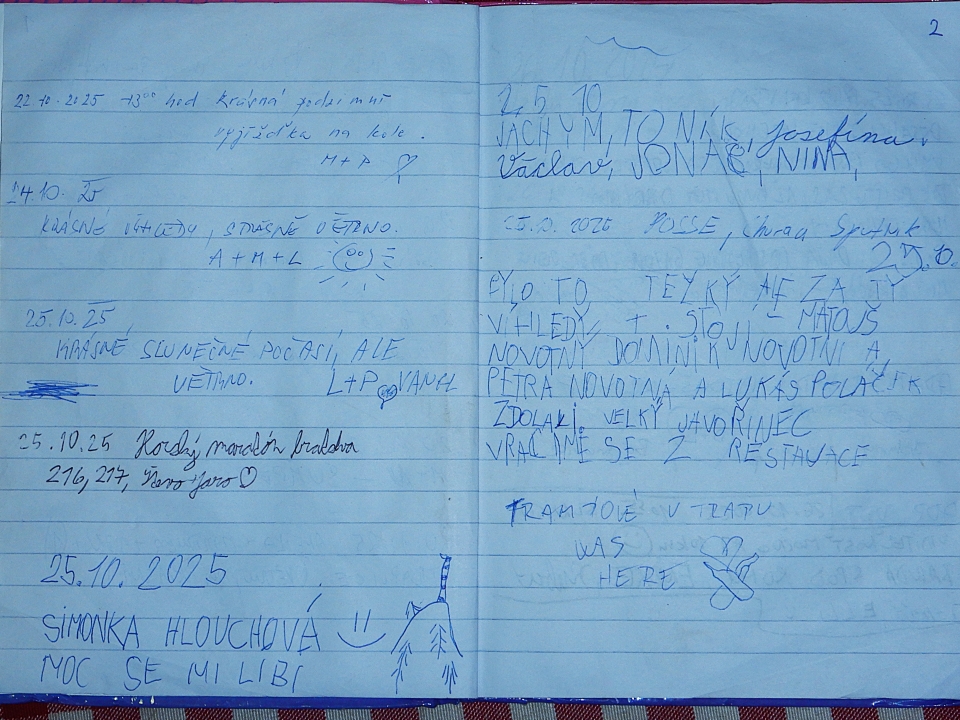 1
22.10.2025 13⁰⁰ hod Krásná podzimní
vyjížďka na kole.
M+P
24.10. 25
KRÁSNÉ VÝHLEDY, STRAŠNĚ VĚTRNO.
A+M+L
25.10.25
KRÁSNÉ SLUNEČNÉ POČASÍ, ALE
VĚTRNO. L+P
25.10.25 Horský maratón bratstva
216, 217,
25.10.2025
SIMONKA HLOUCHOVÁ
MOC SE MI LIBÍ
2
25 10
JÁCHYM, TONÍK, Josefína,
Václav, JONÁŠ, NINA,
25.10.2025 POSSE, Churaa Sputnik
25.10.
BYLO TO TEŽKÝ ALE ZA TY
VÍHLEDY + . STOJÍ – MATOUŠ
NOVOTNÝ DOMINIK NOVOTNÍ A
PETRA NOVOTNÁ A LUKÁŠ POLÁČEK
ZDOLALI VELKÝ JAVOŘINEC
VRACÍME SE Z RESTAVACE
V TRAPU
WAS
HERE